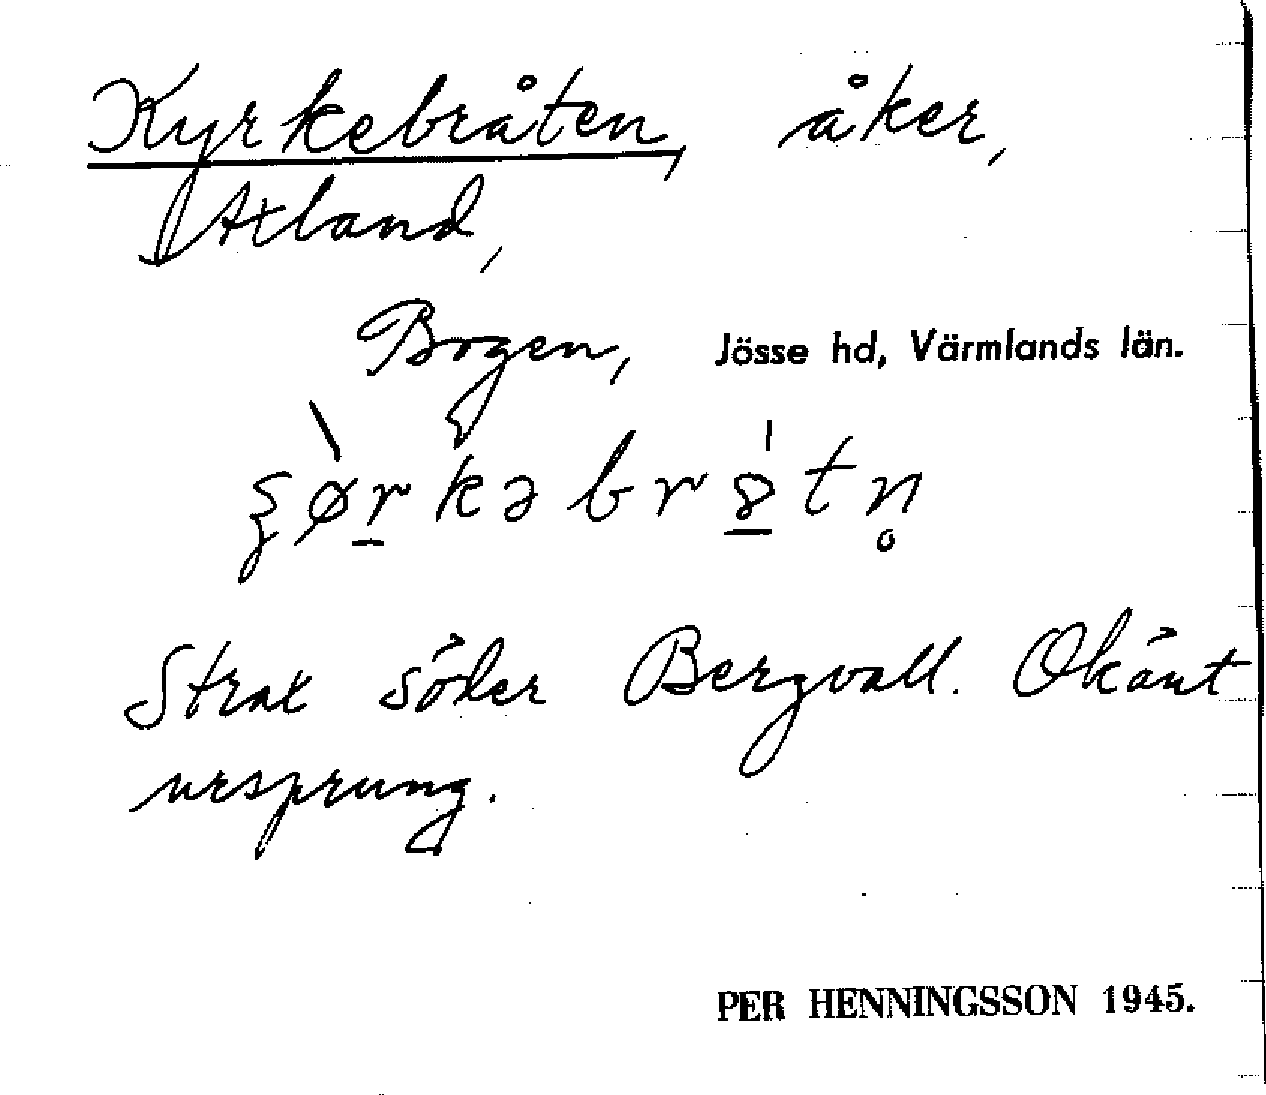 Kyrkebråten, åker,
Axland,
Bogen, Jösse hd, Värmlands län.
ʂø̀r̠kəbrȣ̠́tn̥
Strax söder Bergvall. Okänt
ursprung.
PER HENNINGSSON 1945.